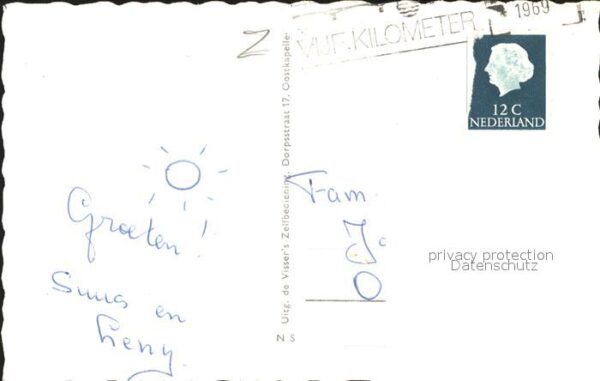 1969
VIJF KILOMETER
12 C
NEDERLAND
Uitg. de Visser's Zelfbediening, Dorpsstraat 17, Oostkapelle
N S
Groeten!
en
Fam.
privacy protection
Datenschutz